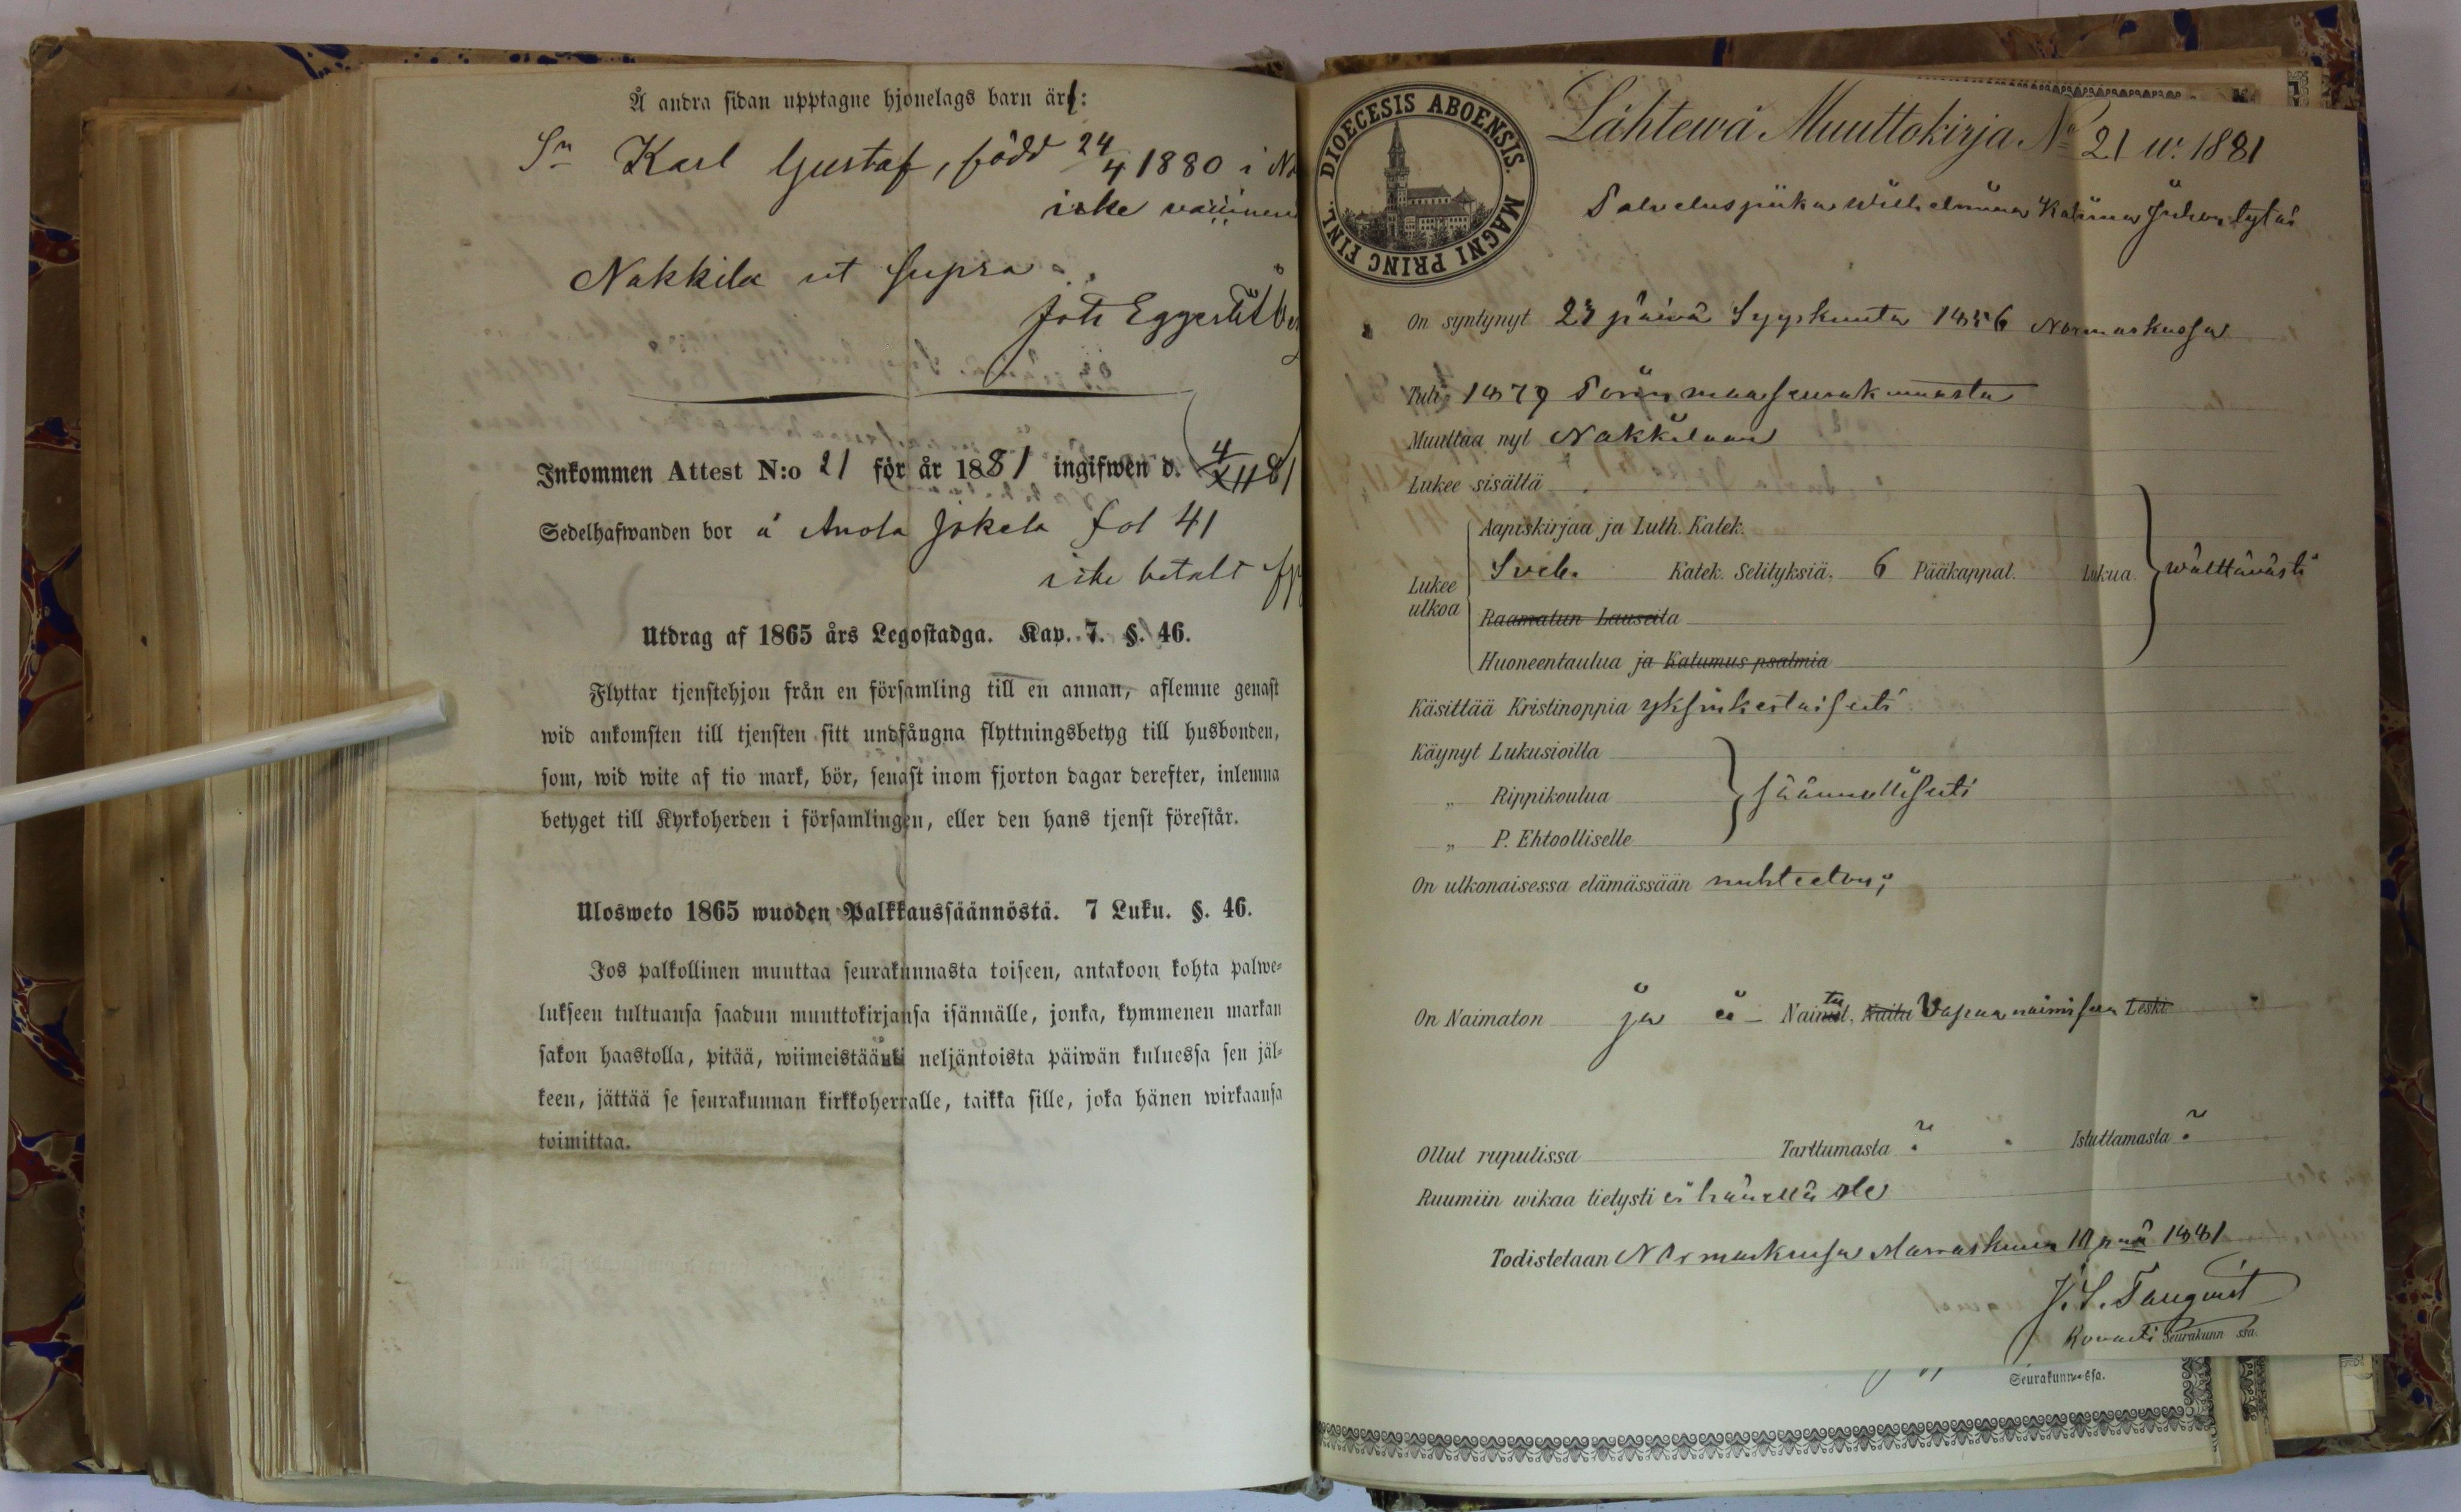 Å andra sidan upptagne hjonelags barn är:
Sn Karl Gustaf, född 24/4 1880 i
icke
Nakkila ut supra
Joh
Inkommen Attest N:o 21 för år 1881 ingifwen d. 4/XII 81
Sedelhafwanden bor å Anola Jokela fol 41
icke betalt
Utdrag af 1865 års Legostadga. Kap. 7. §. 46.
Flyttar tjenstehjon från en församling till en annan, aflemne genast
wid ankomsten till tjensten sitt undfångna flyttningsbetyg till husbonden,
som, wid wite af tio mark, bör, senast inom fjorton dagar derefter, inlemna
betyget till Kyrkoherden i församlingen, eller den hans tjenst förestår.
Ulosweto 1865 wuoden Palkkaussäännöstä. 7 Luku. §. 46.
Jos palkollinen muuttaa seurakunnasta toiseen, antakoon kohta palwe-
lukseen tultuansa saadun muuttokirjansa isännälle, jonka, kymmenen markan
sakon haastolla, pitää, wiimeistäänki neljäntoista päiwän kuluessa sen jäl-
keen, jättää se seurakunnan kirkkoherralle, taikka sille, joka hänen wirkaansa
toimittaa.
DIOECESIS ABOENSIS. MAGNI PRINC FINL.
Lähtewä Muuttokirja No 21 w. 1881
Palveluspiika Wilhelmina Katrina Juhontytär
On syntynyt 23 päivä Syyskuuta 1856 Normarkussa
Tuli 1879 Porin maaseurakunnasta
Muuttaa nyt Nakkilaan
Lukee sisältä
Aapiskirjaa ja Luth. Katek.
Lukee ulkoa Sveb. Katek. Selityksiä, 6 Pääkappal. Lukua. wälttävästi
Raamatun Lauseita
Huoneentaulua ja Katumus psalmia
Käsittää Kristinoppia yksinkertaisesti
Käynyt Lukusioilla
„ Rippikoulua säännöllisesti
„ P. Ehtoolliselle
On ulkonaisessa elämässään nuhteeton;
On Naimaton ja on Naitu Vapaa naimiseen Leski
Ollut rupulissa Tarttumasta ? Istuttamasta ?
Ruumiin wikaa tietysti ei hänellä ole
Todistetaan Normarkussa Marraskuun 18 pnä 1881
J. S. Tanqvist
Seurakunn ssa.
Seurakunnassa.